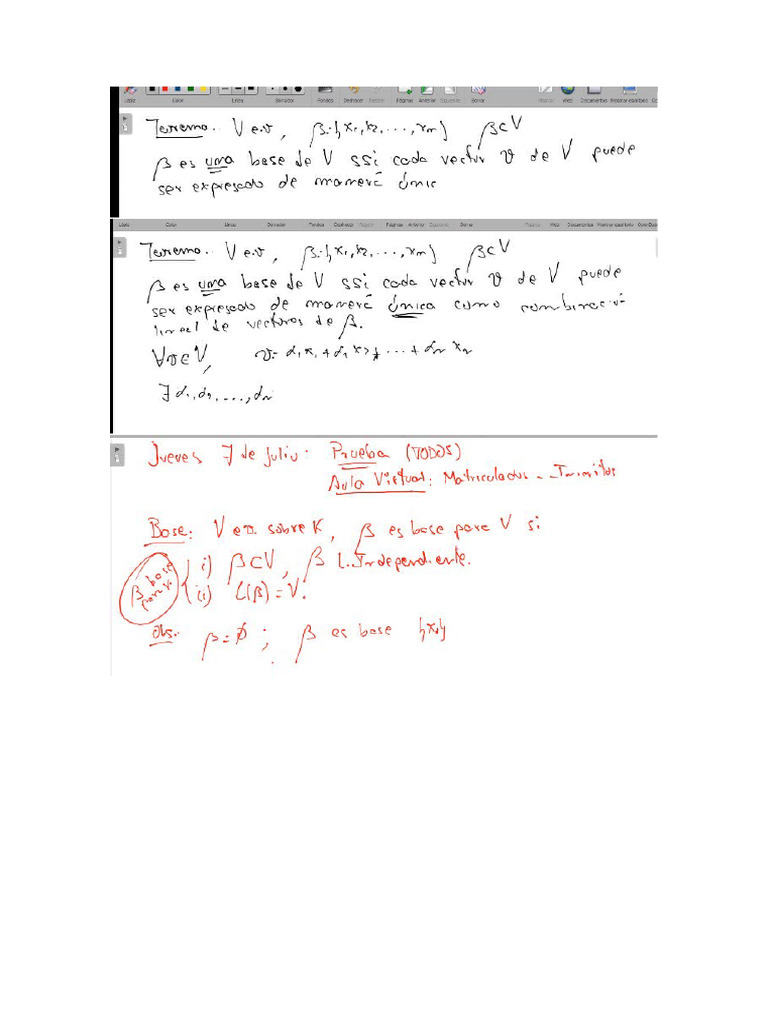 Lápiz Color Línea Borrador Fondos Deshacer Rehacer Páginas Anterior Siguiente Borrar Web Documentos Mostrar escritorio
Teorema.. V e.v, β={x1, x2, ..., xm} β⊂V
β es una base de V ssi cada vector v de V puede
ser expresado de manera únic
Lápiz Color Línea Borrador Fondos Deshacer Rehacer Páginas Anterior Siguiente Borrar Web Documentos Mostrar escritorio
Teorema.. V e.v, β={x1, x2, ..., xm} β⊂V
β es una base de V ssi cada vector v de V puede
ser expresado de manera única como combinació
lineal de vectores de β.
∀v∈V, v= α1 x1 + α2 x2 + ... + αn xn
∃ α1, α2, ..., αn
Jueves 7 de julio: Prueba (TODOS)
Aula Virtual: Matriculados -
Base: V e.v. sobre K, β es base para V si
i) β⊂V, β L.Independiente.
ii) L(β) = V.
β base para V
Obs: β=∅; β es base